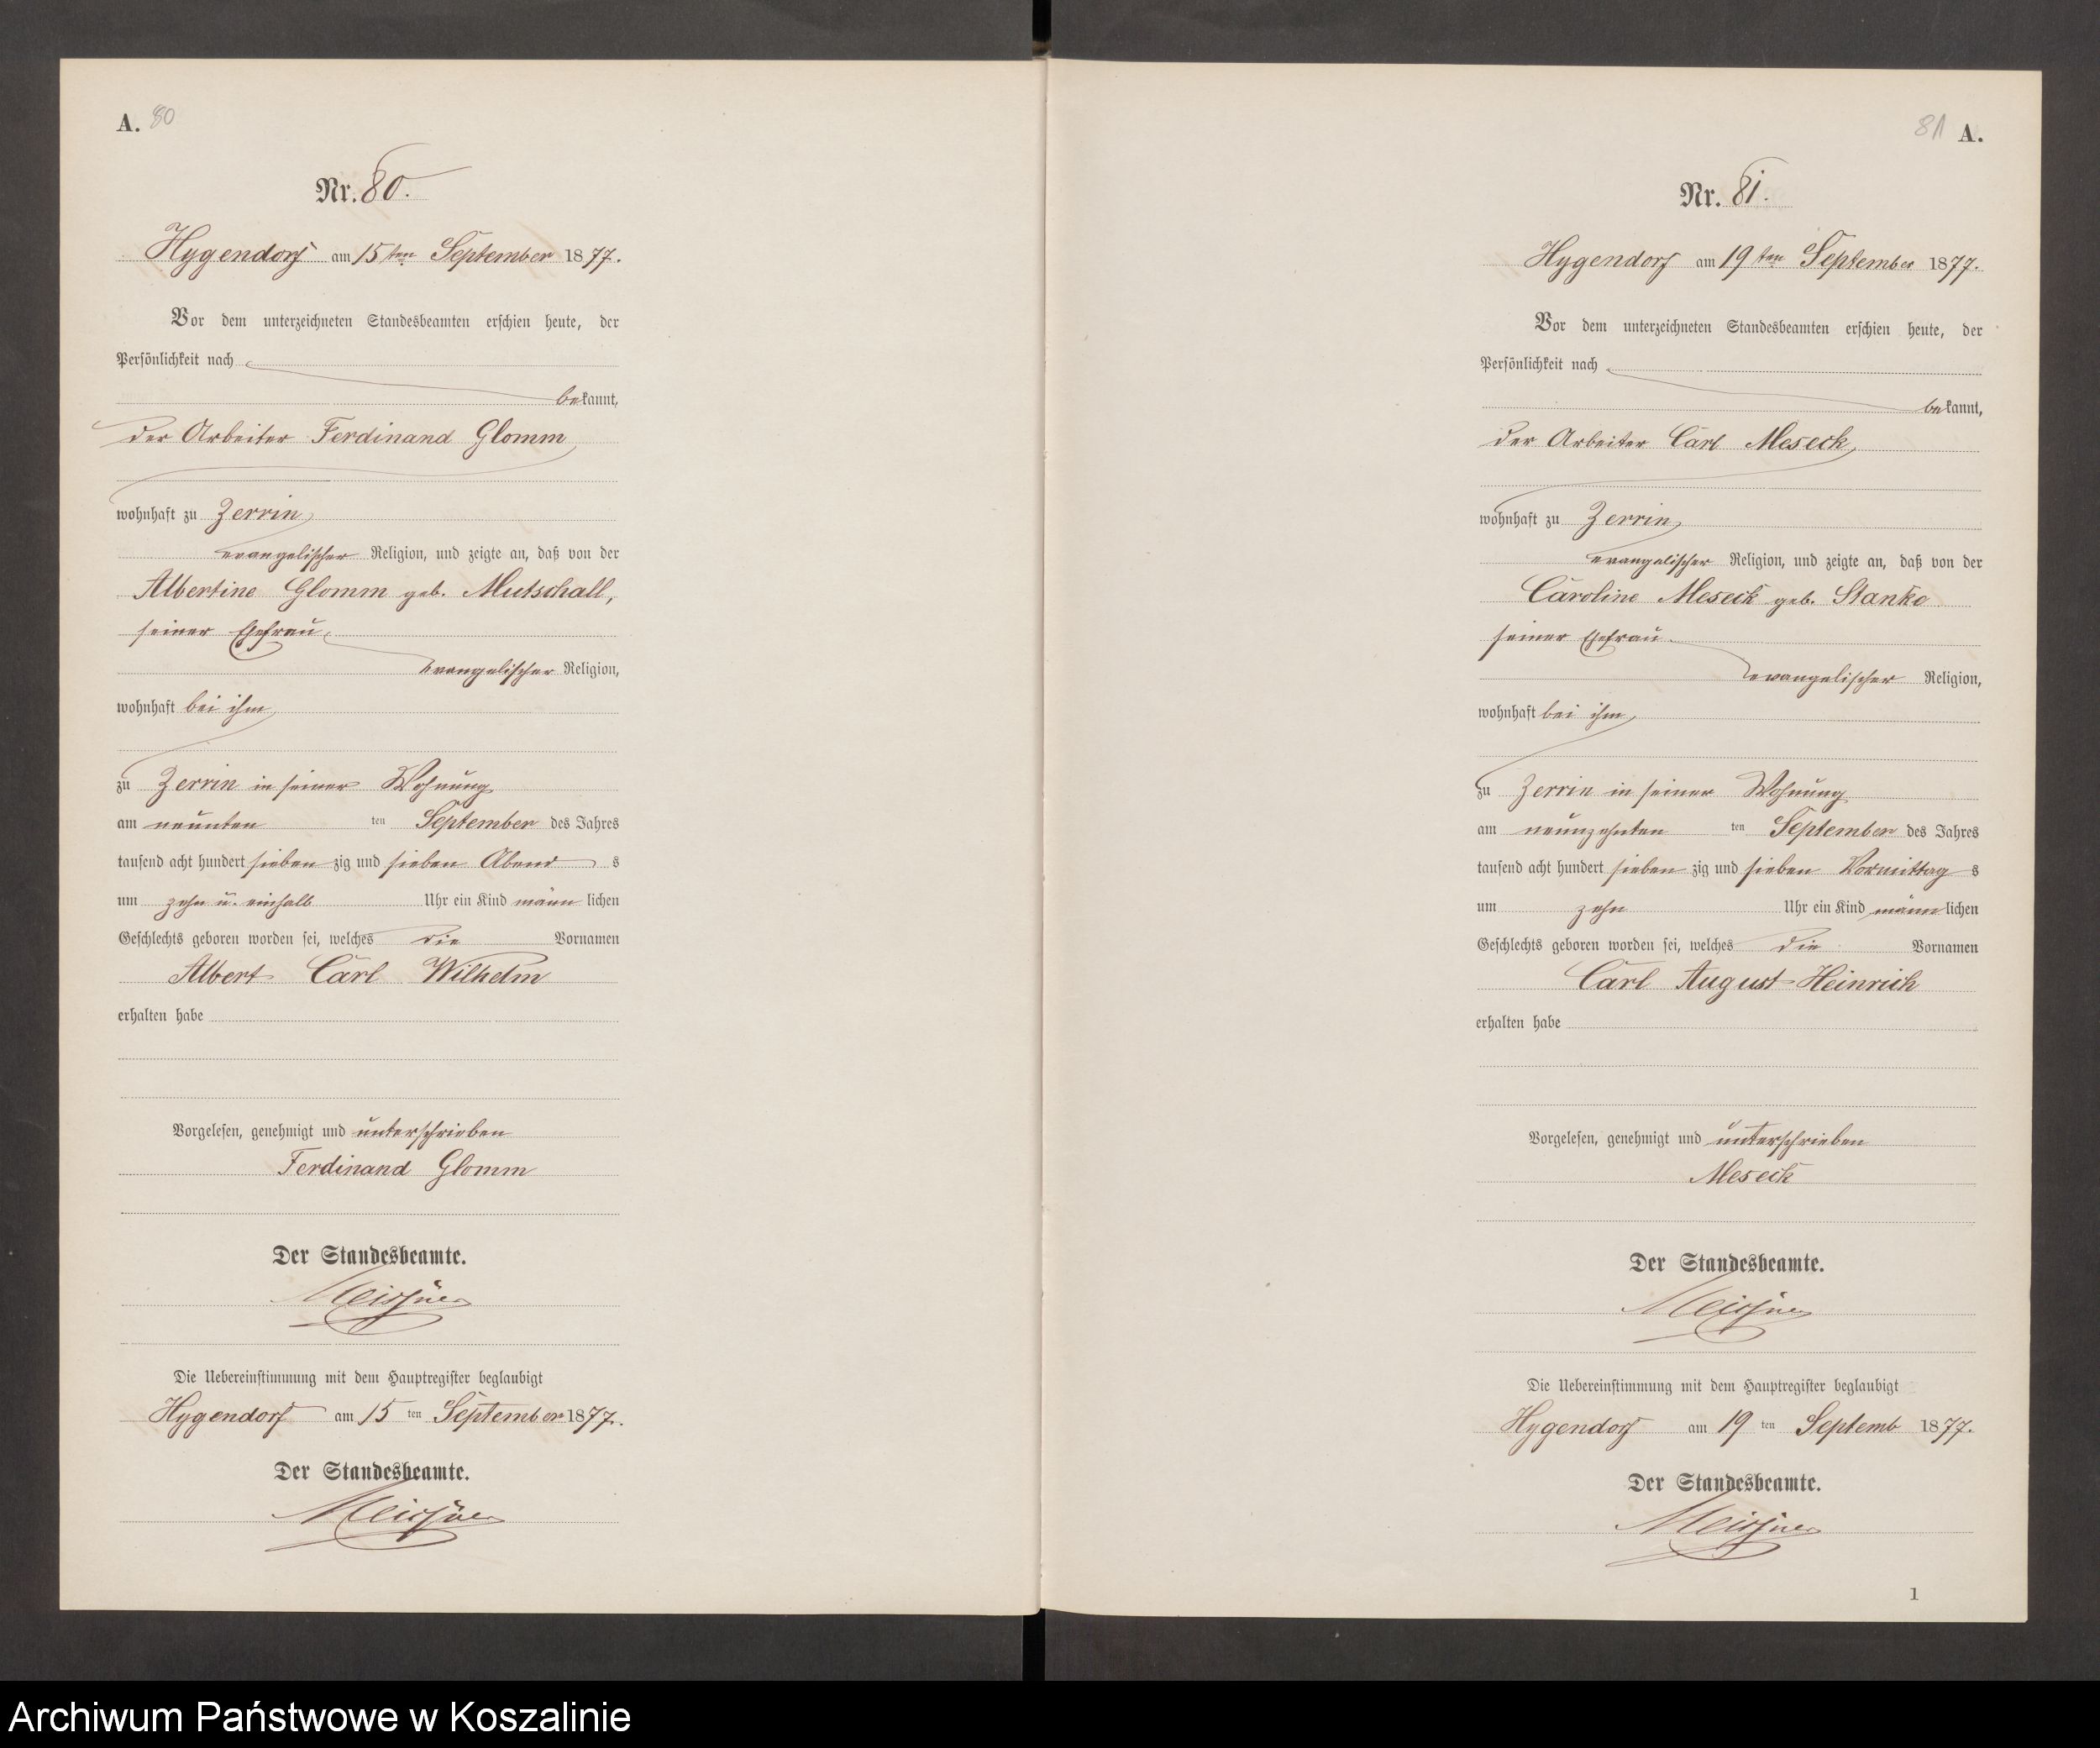 A. 80
Nr. 80.
Hygendorf am 15ten September 1877.
Vor dem unterzeichneten Standesbeamten erschien heute, der
Persönlichkeit nach
bekannt,
der Arbeiter Ferdinand Glomm
wohnhaft zu Zerrin
evangelischer Religion, und zeigte an, daß von der
Albertine Glomm geb. Mutschall,
seiner Ehefrau
evangelischer Religion,
wohnhaft bei ihm
zu Zerrin in seiner Wohnung
am neunten ten September des Jahres
tausend acht hundert sieben zig und sieben Abend s
um zehn u. einhalb Uhr ein Kind männ lichen
Geschlechts geboren worden sei, welches die Vornamen
Albert Carl Wilhelm
erhalten habe
Vorgelesen, genehmigt und unterschrieben
Ferdinand Glomm
Der Standesbeamte.
Meissner
Die Uebereinstimmung mit dem Hauptregister beglaubigt
Hygendorf am 15 ten September 1877.
Der Standesbeamte.
Meissner
81 A.
Nr. 81.
Hygendorf am 19ten September 1877.
Vor dem unterzeichneten Standesbeamten erschien heute, der
Persönlichkeit nach
bekannt,
der Arbeiter Carl Meseck
wohnhaft zu Zerrin
evangelischer Religion, und zeigte an, daß von der
Caroline Meseck geb. Stanke
seiner Ehefrau
evangelischer Religion,
wohnhaft bei ihm
zu Zerrin in seiner Wohnung
am neunzehnten ten September des Jahres
tausend acht hundert sieben zig und sieben Vormittag s
um zehn Uhr ein Kind männ lichen
Geschlechts geboren worden sei, welches die Vornamen
Carl August Heinrich
erhalten habe
Vorgelesen, genehmigt und unterschrieben
Meseck
Der Standesbeamte.
Meissner
Die Uebereinstimmung mit dem Hauptregister beglaubigt
Hygendorf am 19 ten Septemb 1877.
Der Standesbeamte.
Meissner
1
Archiwum Państwowe w Koszalinie